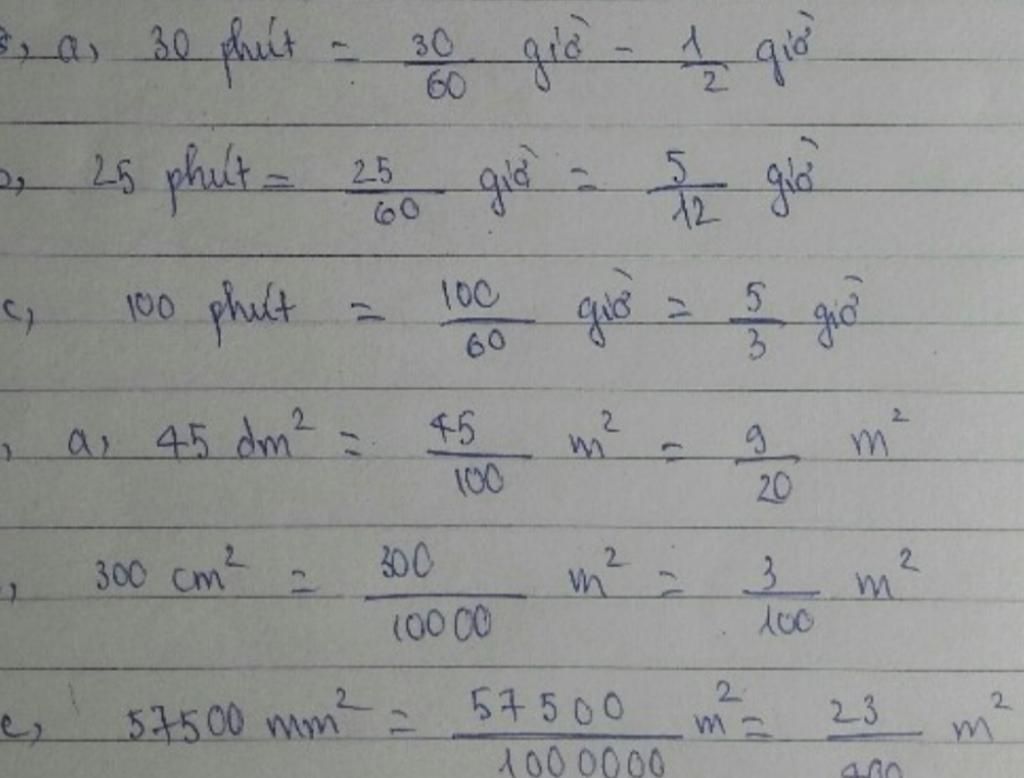 a, 30 phút = 30/60 giờ = 1/2 giờ
b, 25 phút = 25/60 giờ = 5/12 giờ
c, 100 phút = 100/60 giờ = 5/3 giờ
a, 45 dm² = 45/100 m² = 9/20 m²
300 cm² = 300/10000 m² = 3/100 m²
c, 57500 mm² = 57500/1000000 m² = 23/400 m²